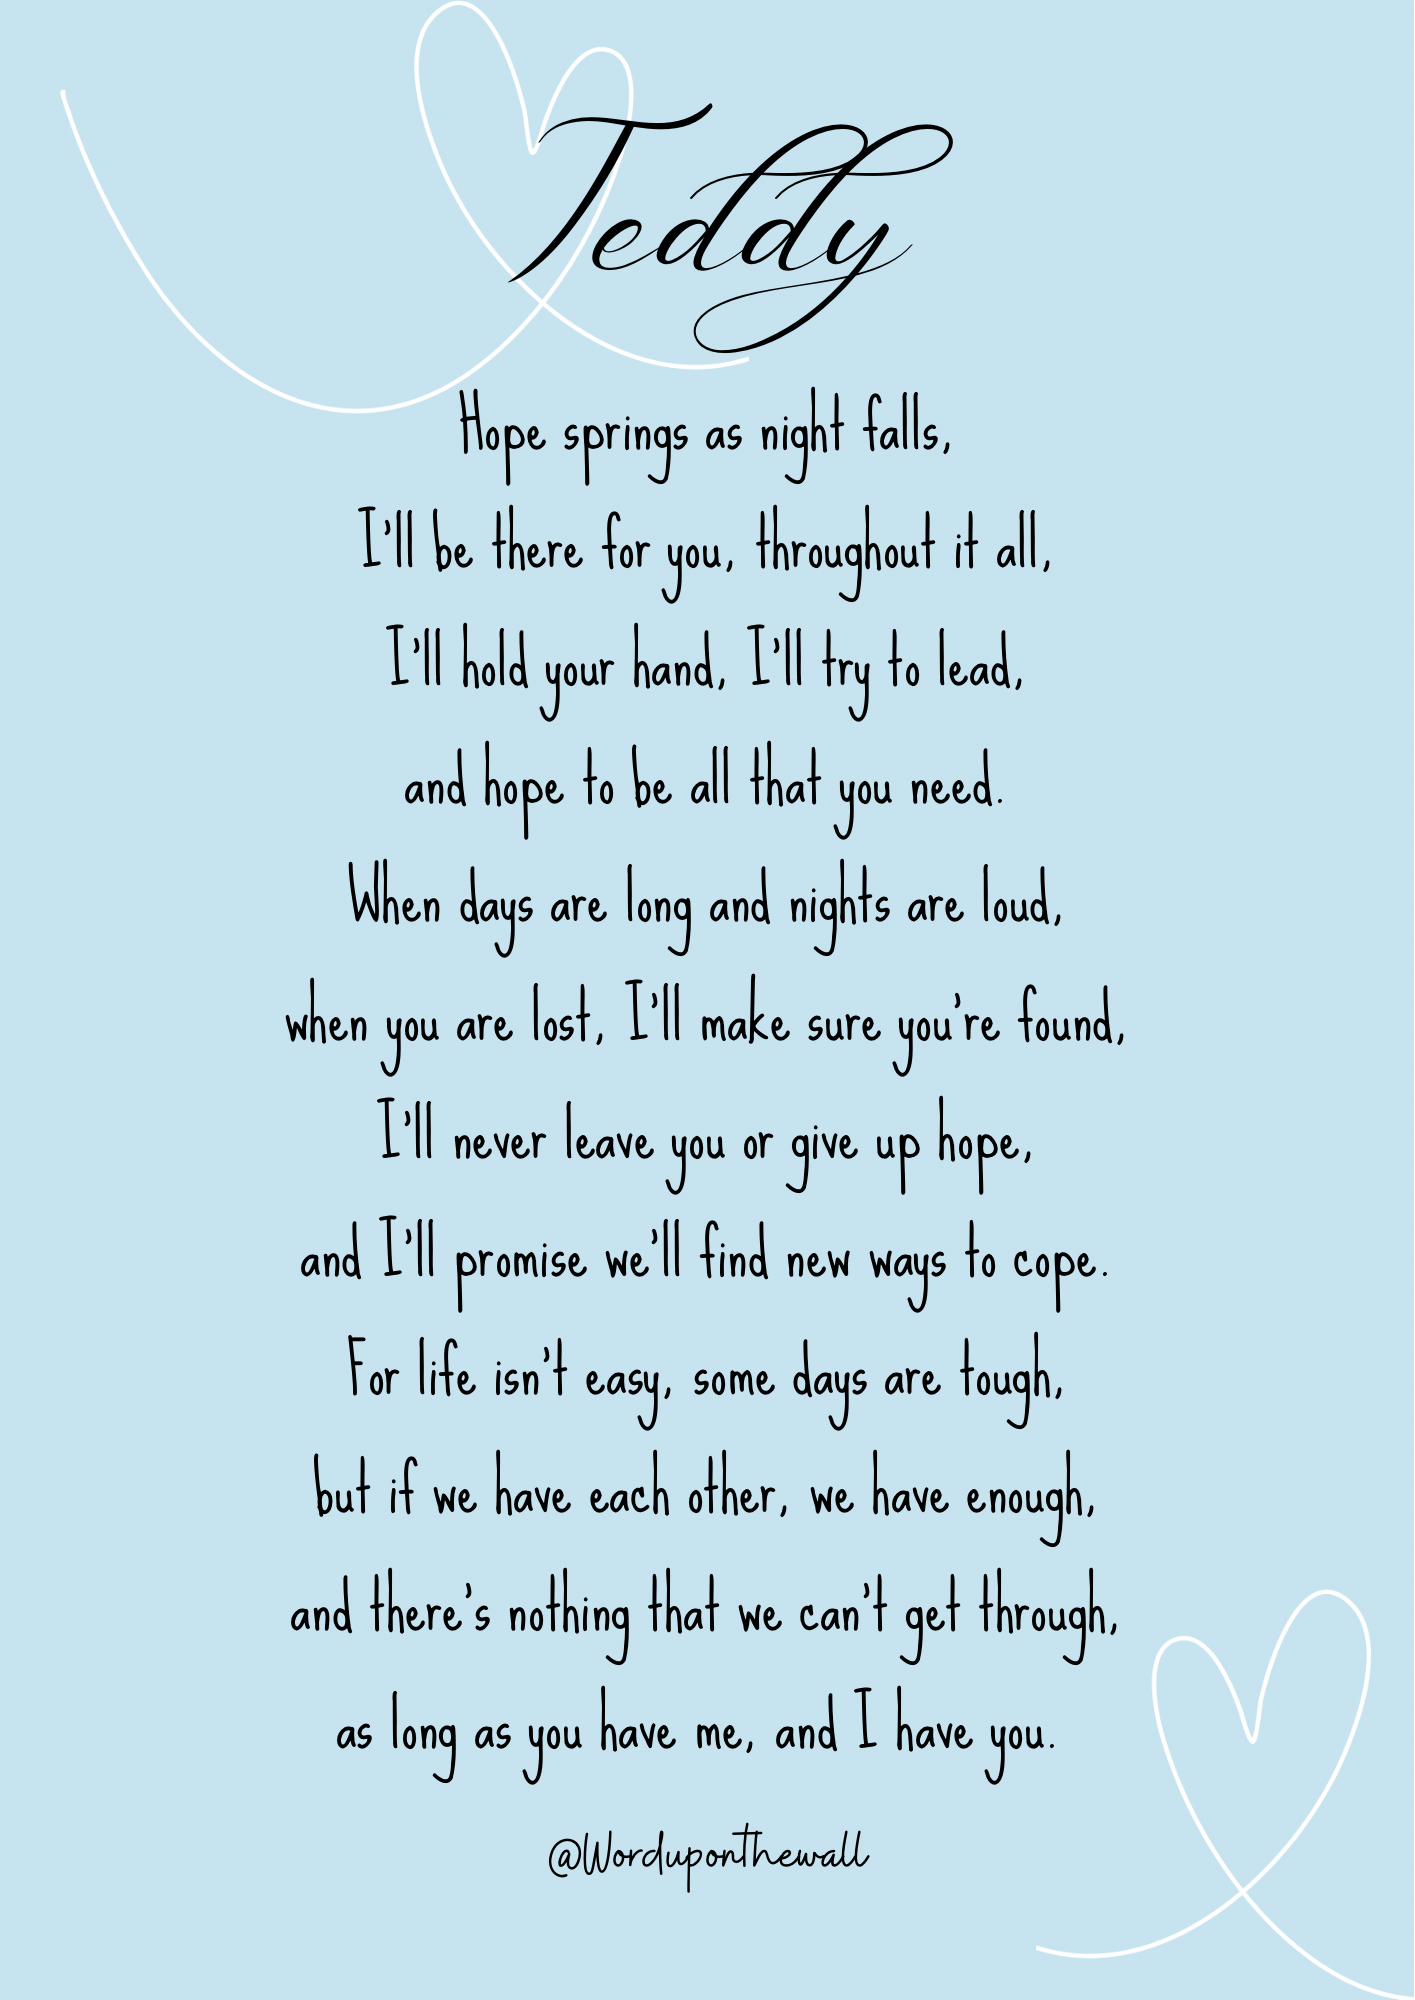 Teddy
Hope springs as night falls,
I'll be there for you, throughout it all,
I'll hold your hand, I'll try to lead,
and hope to be all that you need.
When days are long and nights are loud,
when you are lost, I'll make sure you're found,
I'll never leave you or give up hope,
and I'll promise we'll find new ways to cope.
For life isn't easy, some days are tough,
but if we have each other, we have enough,
and there's nothing that we can't get through,
as long as you have me, and I have you.
@Worduponthewall